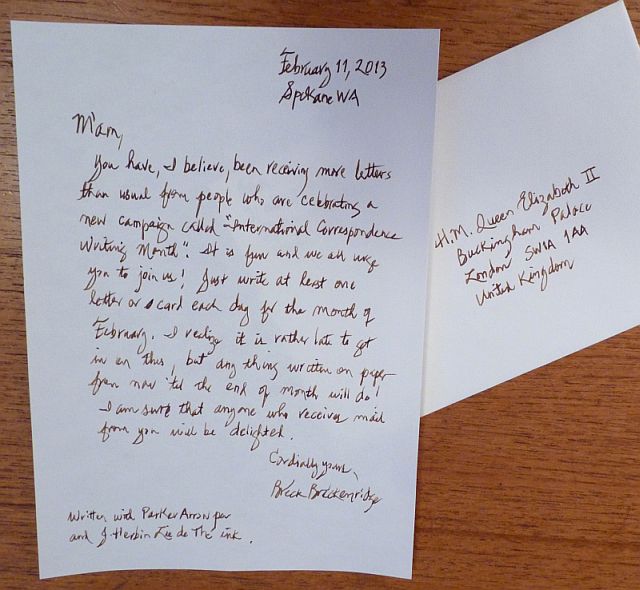 February 11, 2013
Spokane WA
M'am,
You have, I believe, been receiving more letters
than usual from people who are celebrating a
new campaign called "International Correspondence
Writing Month". It is fun and we all urge
you to join us! Just write at least one
letter or card each day for the month of
February. I realize it is rather late to get
in on this, but any thing written on paper
from now 'til the end of month will do!
I am sure that anyone who receives mail
from you will be delighted.
Cordially yours,
Breck Breckenridge
Written with Parker Arrow pen
and J Herbin Lie de Thé ink.
H.M. Queen Elizabeth II
Buckingham Palace
London SW1A 1AA
United Kingdom